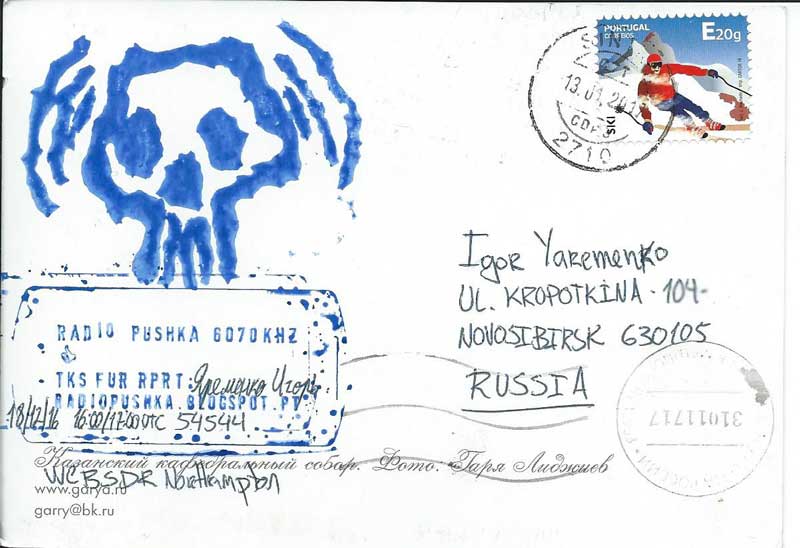 PORTUGAL
CORREIOS
E20g
SKI
13.01.20
2710
Igor Yaremenko
UL. KROPOTKINA - 104-
NOVOSIBIRSK 630105
RUSSIA
RADIO PUSHKA 6070KHZ
TKS FUR RPRT: Яременко Игорь
RADIOPUSHKA.BLOGSPOT.PT
18/12/16 16:00/17:00 UTC 54544
31011717
Казанский кафедральный собор. Фото. Гаря Лиджиев
WCBSDR Northampton
www.garya.ru
garry@bk.ru